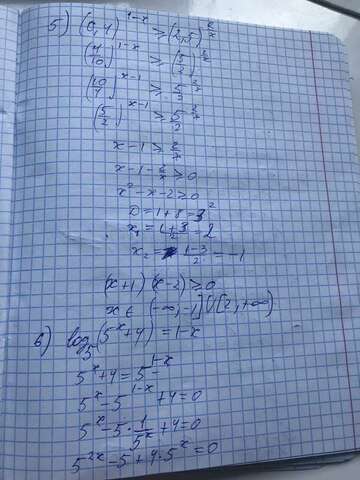 5) (0,4)^{1-x} ≥ (2,5)^{2/x}
(4/10)^{1-x} ≥ (5/2)^{2/x}
(10/4)^{x-1} ≥ (5/2)^{2/x}
(5/2)^{x-1} ≥ (5/2)^{2/x}
x-1 ≥ 2/x
x-1-2/x ≥ 0
x²-x-2 ≥ 0
D=1+8=3²
x₁=(1+3)/2=2
x₂=(1-3)/2=-1
(x+1)(x-2) ≥ 0
x ∈ (-∞,-1]∪[2,+∞)
6) log₅(5^x+4)=1-x
5^x+4=5^{1-x}
5^x-5^{1-x}+4=0
5^x-5·1/5^x+4=0
5^{2x}-5+4·5^x=0